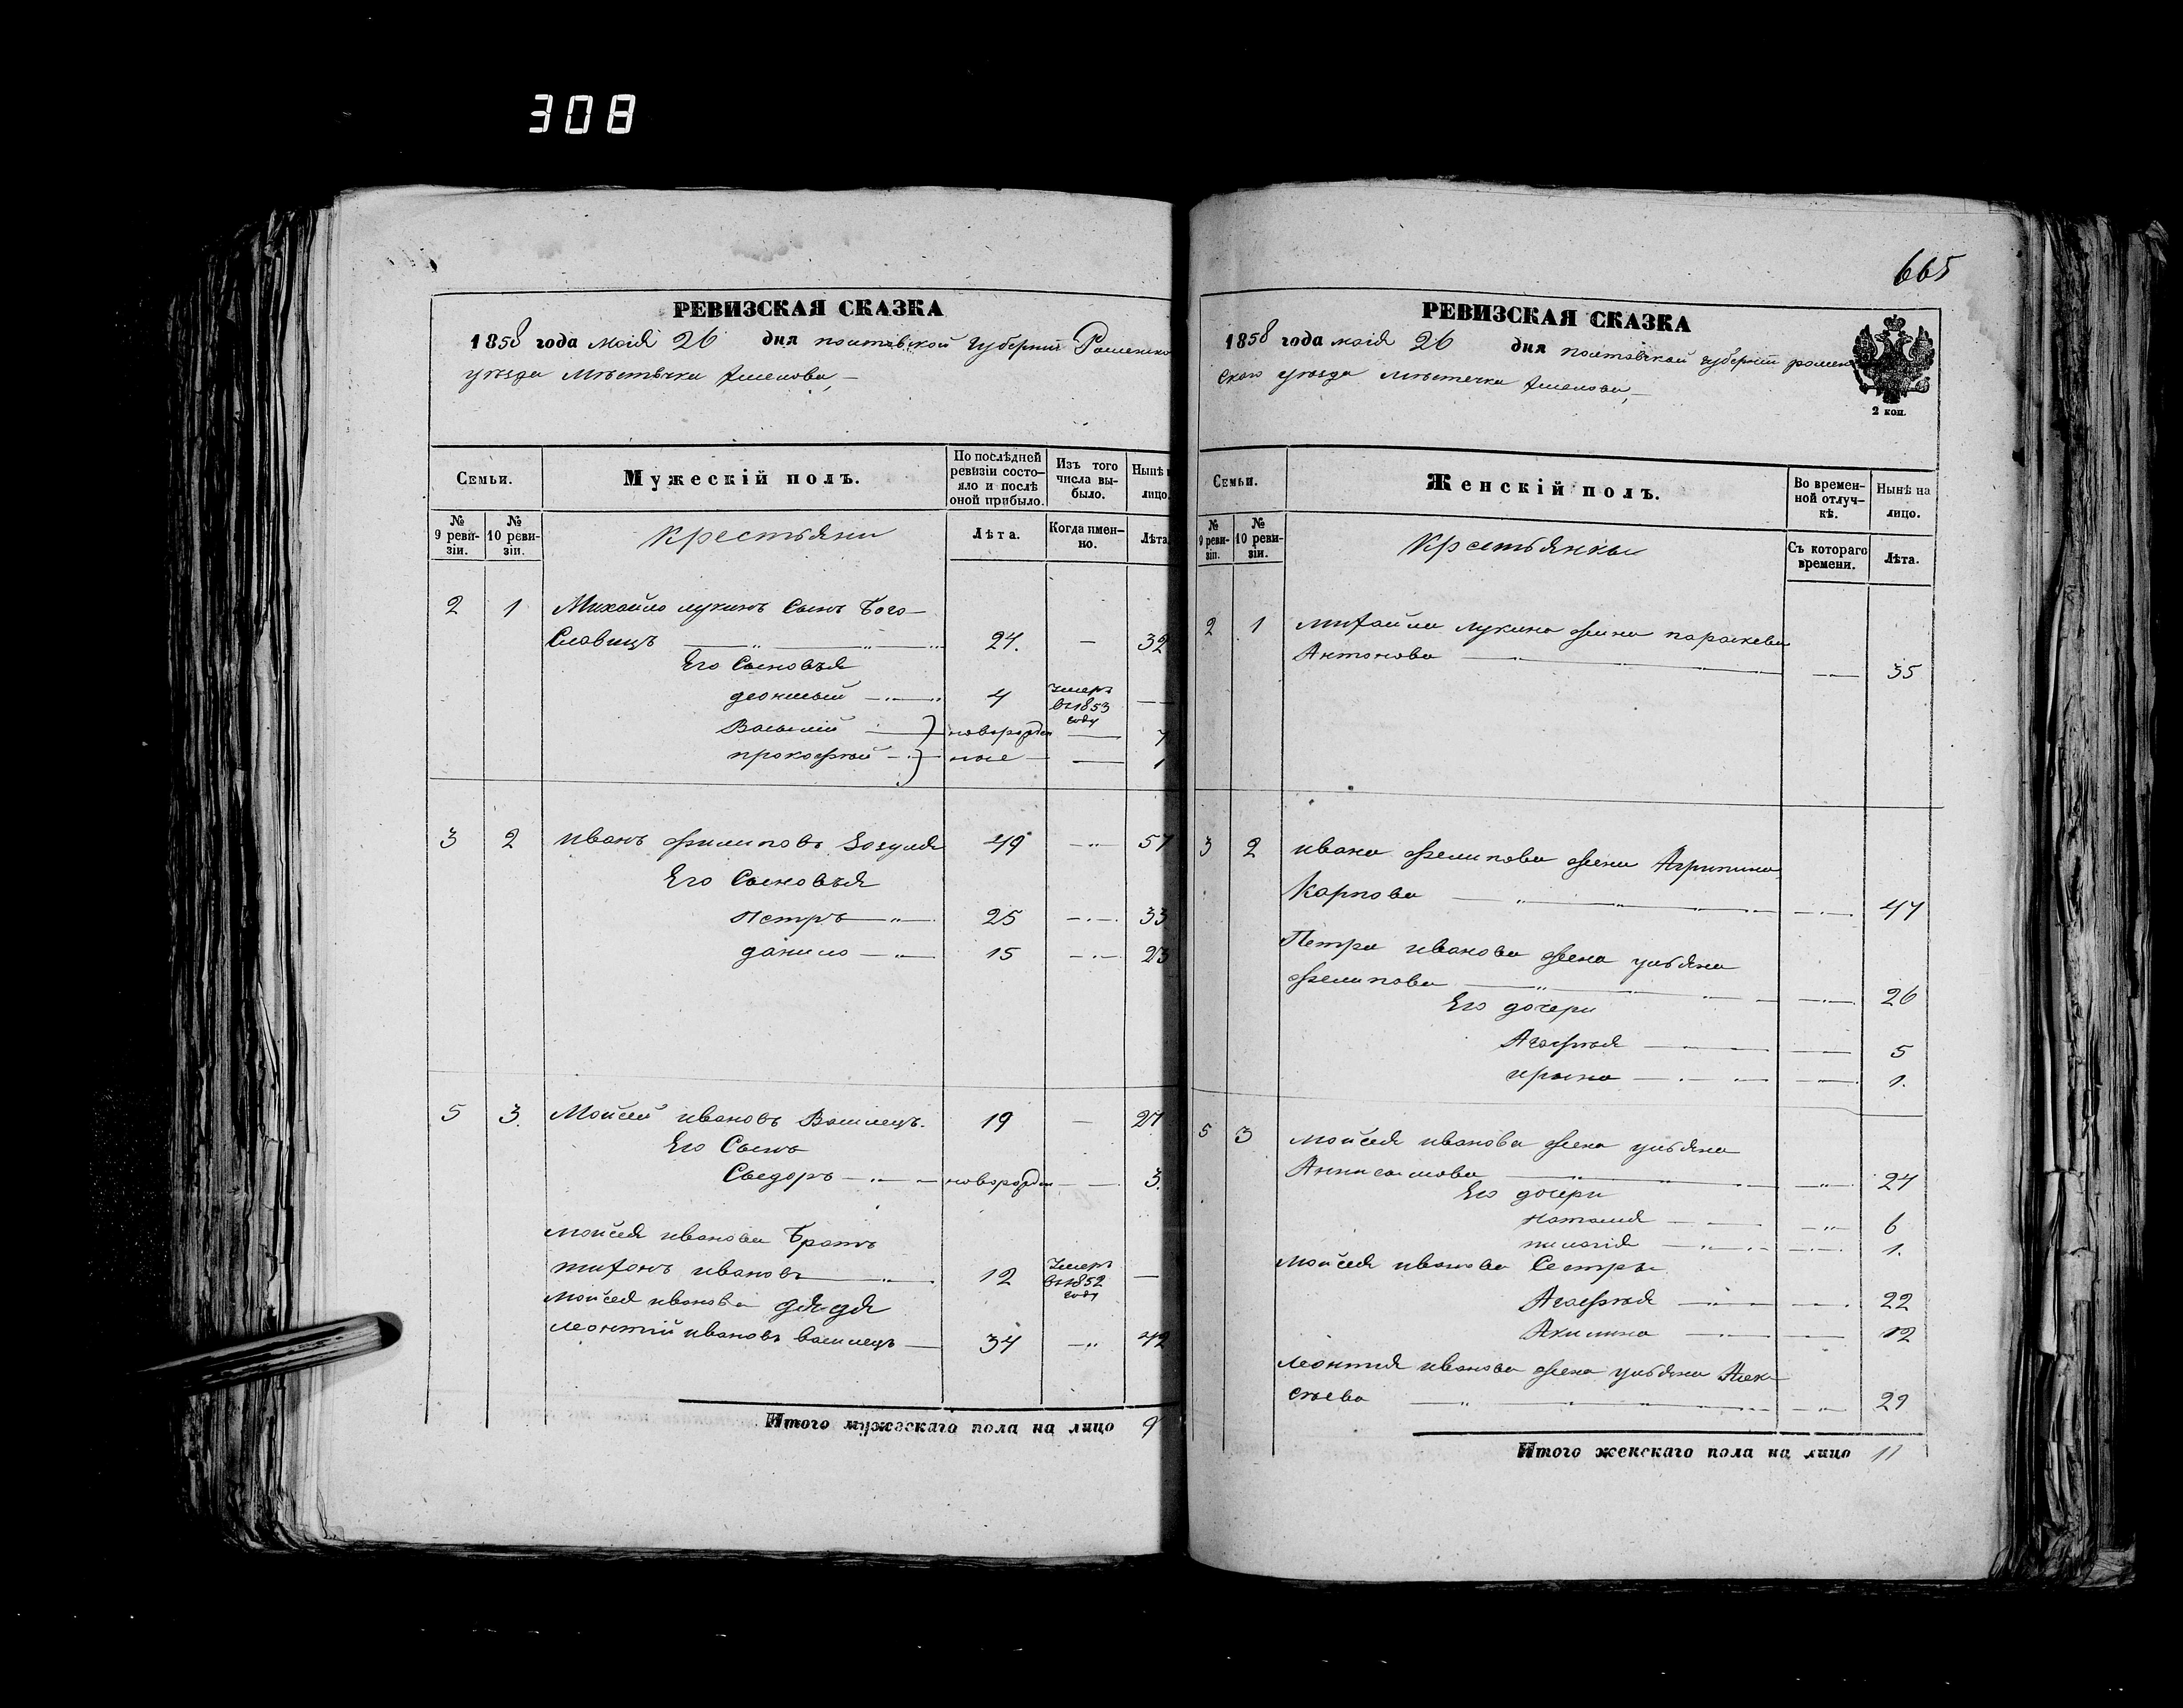 308
РЕВИЗСКАЯ СКАЗКА
1858 года маія 26 дня полтавской губерніи Роменско
уѣзда мѣстѣчка
Семьи.
Мужескій полъ.
По послѣдней ревизіи состояло и послѣ оной прибыло.
Изъ того числа выбыло.
Нынѣ н лицо.
№ 9 ревизіи.
№ 10 ревизіи.
Крестьяни
Лѣта.
Когда именно.
Лѣта
2 1 Михайло лукинъ Сынъ Бого-
Славецъ 24. — 32
Его Сыновья
леонтый 4 Умеръ въ 1853 году —
Васылій новорожден — 7
прокофтый ные — 1
3 2 иванъ филиповъ Зозуля 49 57
Его Сыновья
Петръ 25 33
данило 15 23
5 3. Мойсей ивановъ Вашлецъ. 19 — 27
Его Сынъ
Сыдоръ новорожден 3.
мойсея иванова Братъ
тихонъ ивановъ 12 Умеръ въ 1852 году —
мойсея иванова дядя
леонтій ивановъ вашлецъ 34 42
Итого мужескаго пола на лицо 9
665
РЕВИЗСКАЯ СКАЗКА
1858 года маія 26 дня полтавской губерніи ромен
ского уѣзда мѣстечка
2 коп.
Семьи.
Женскій полъ.
Во временной отлучкѣ.
Нынѣ на лицо.
№ 9 ревизіи.
№ 10 ревизіи.
Крстьянкы
Съ котораго времени.
Лѣта.
2 1 михайла лукина жена параскева
Антонова 35
3 2 ивана филипова жена Агрипина
Карпова 47
Петра иванова жена ульяна
филипова 26
Его дочери
Агафтья 5
ирына 1.
5 3 мойсея иванова жена ульяна
Анисимова 24
Его дочери
наталія 6
пилагія 1.
мойсея иванова Сестры
Агафтья 22
Акилина 12
леонтія иванова жена ульяна Алек
сѣева 29
Итого женскаго пола на лицо 11